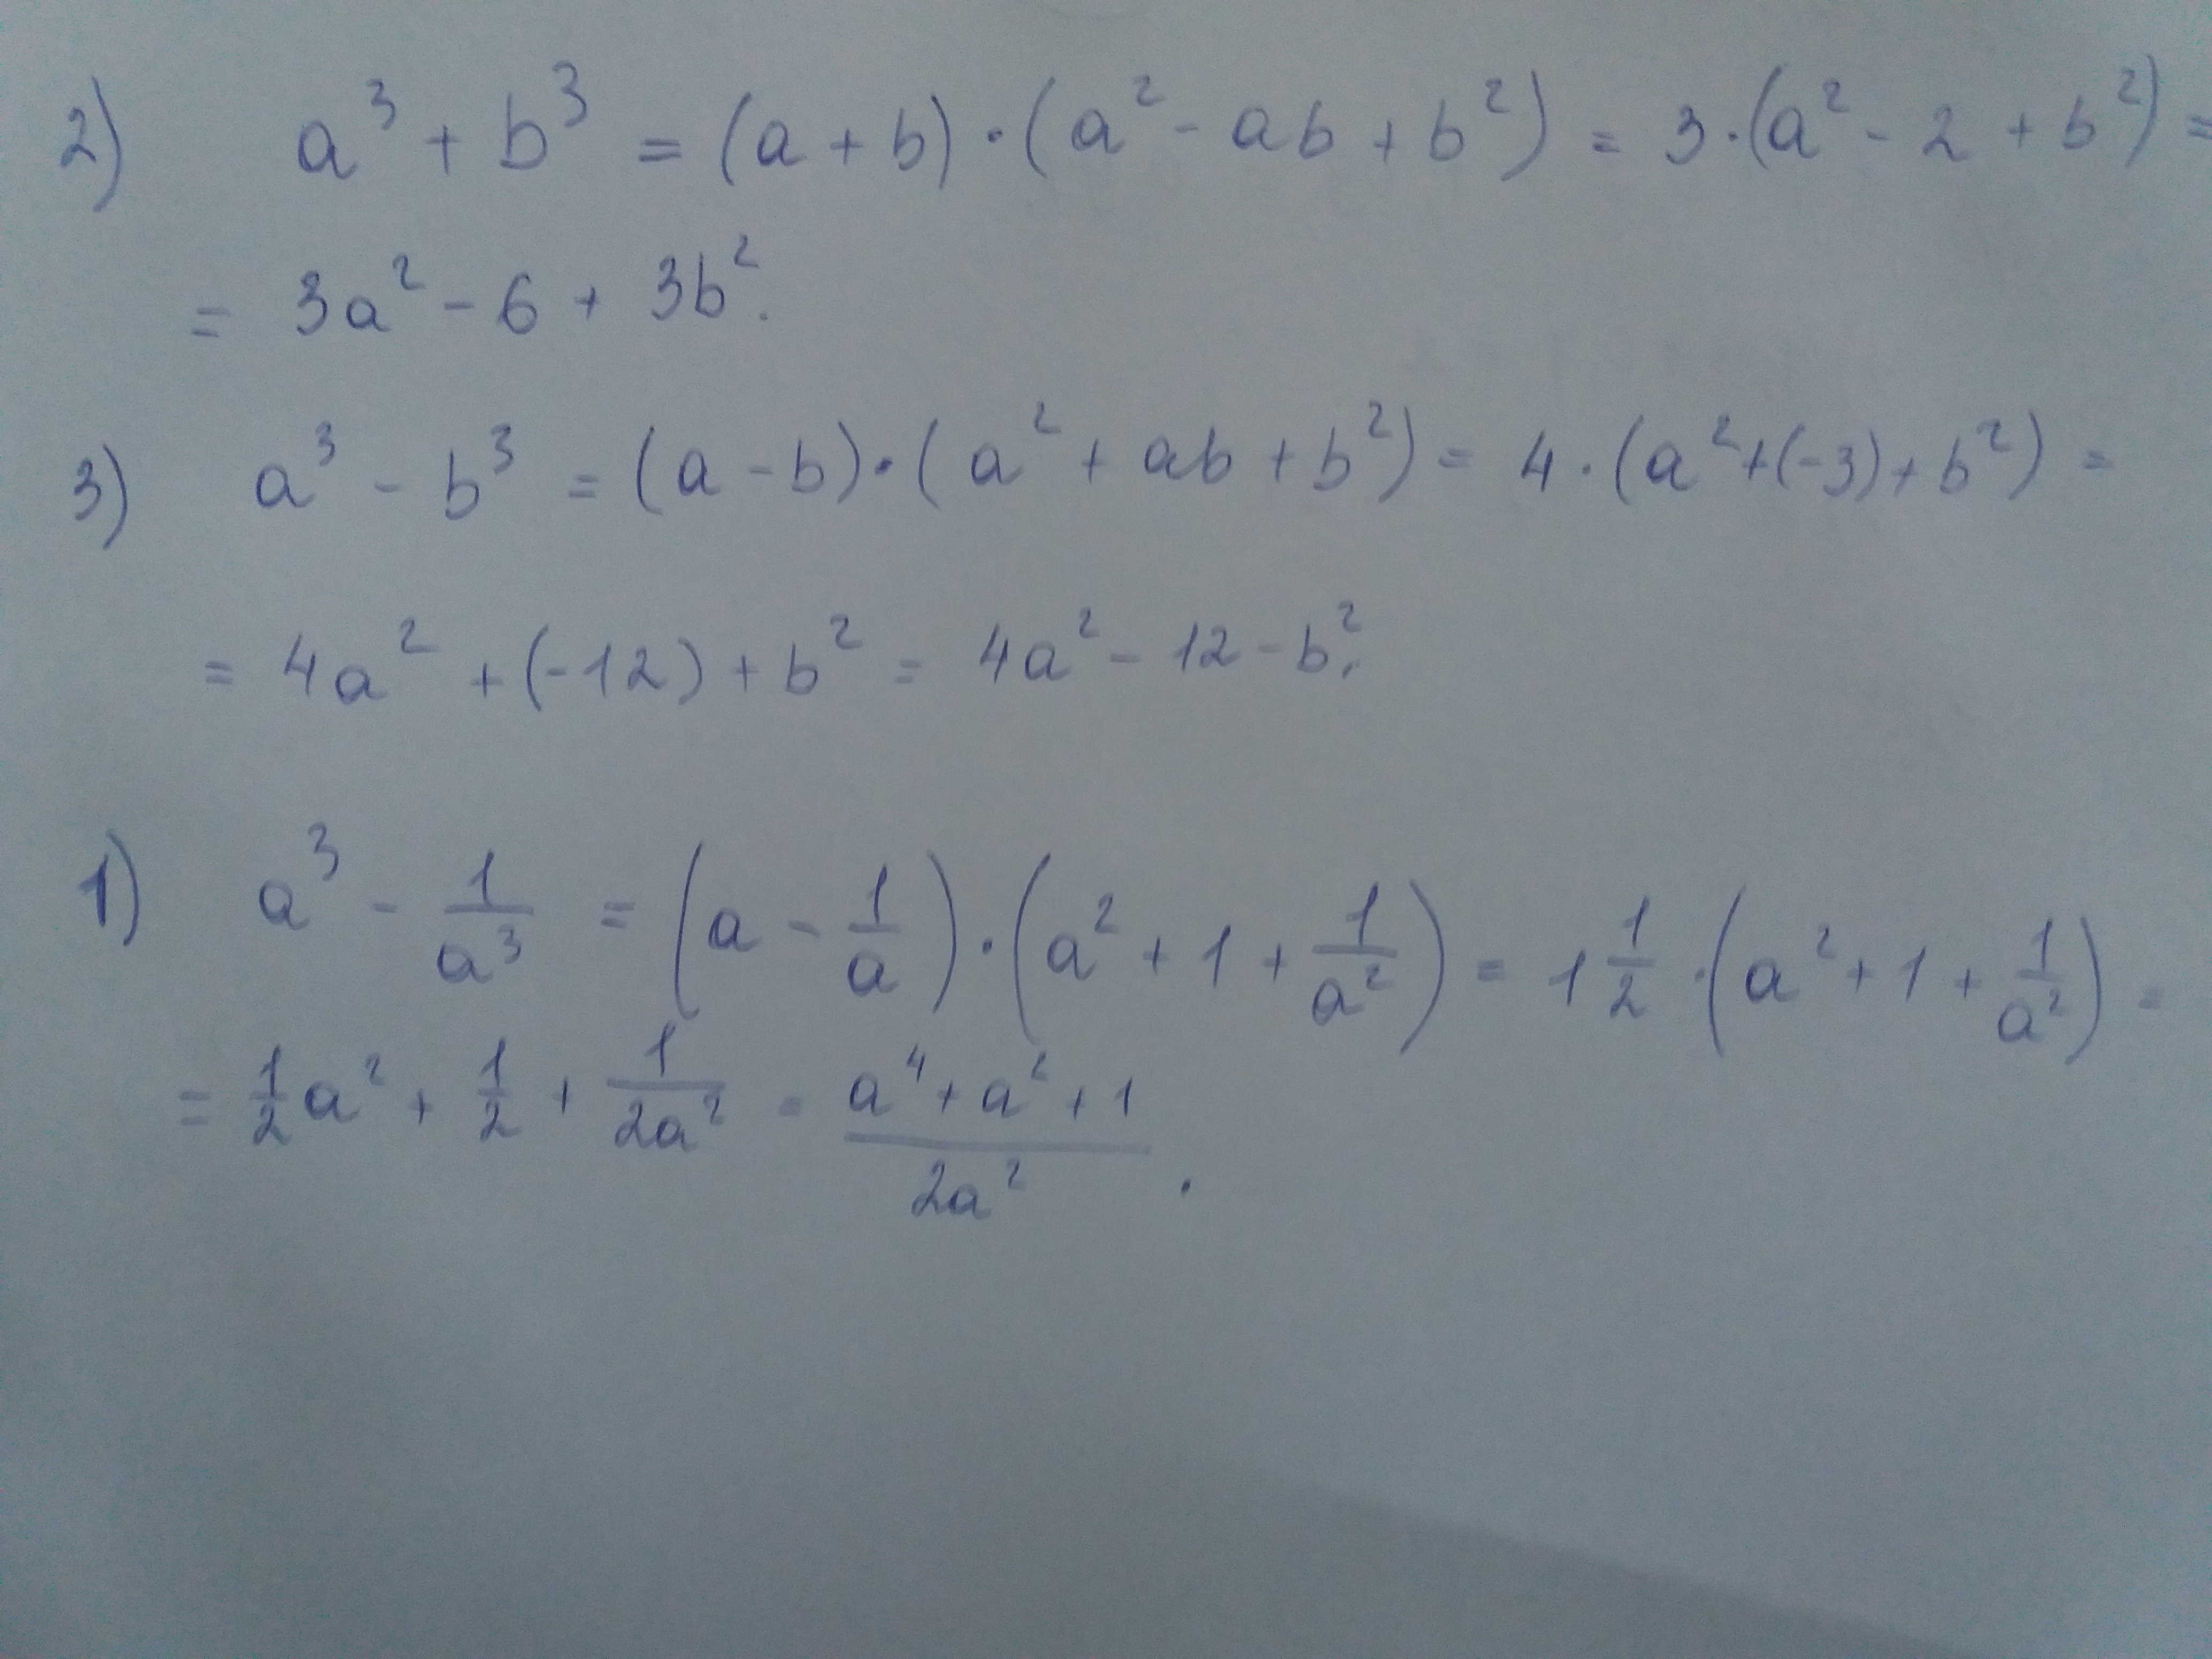 2) a³ + b³ = (a + b)·(a² - ab + b²) = 3·(a² - 2 + b²) =
= 3a² - 6 + 3b².
3) a³ - b³ = (a - b)·(a² + ab + b²) = 4·(a² + (-3) + b²) =
= 4a² + (-12) + b² = 4a² - 12 - b².
1) a³ - 1/a³ = (a - 1/a)·(a² + 1 + 1/a²) = 1 1/2·(a² + 1 + 1/a²) =
= 1/2 a² + 1/2 + 1/2a² = (a⁴ + a² + 1)/2a².